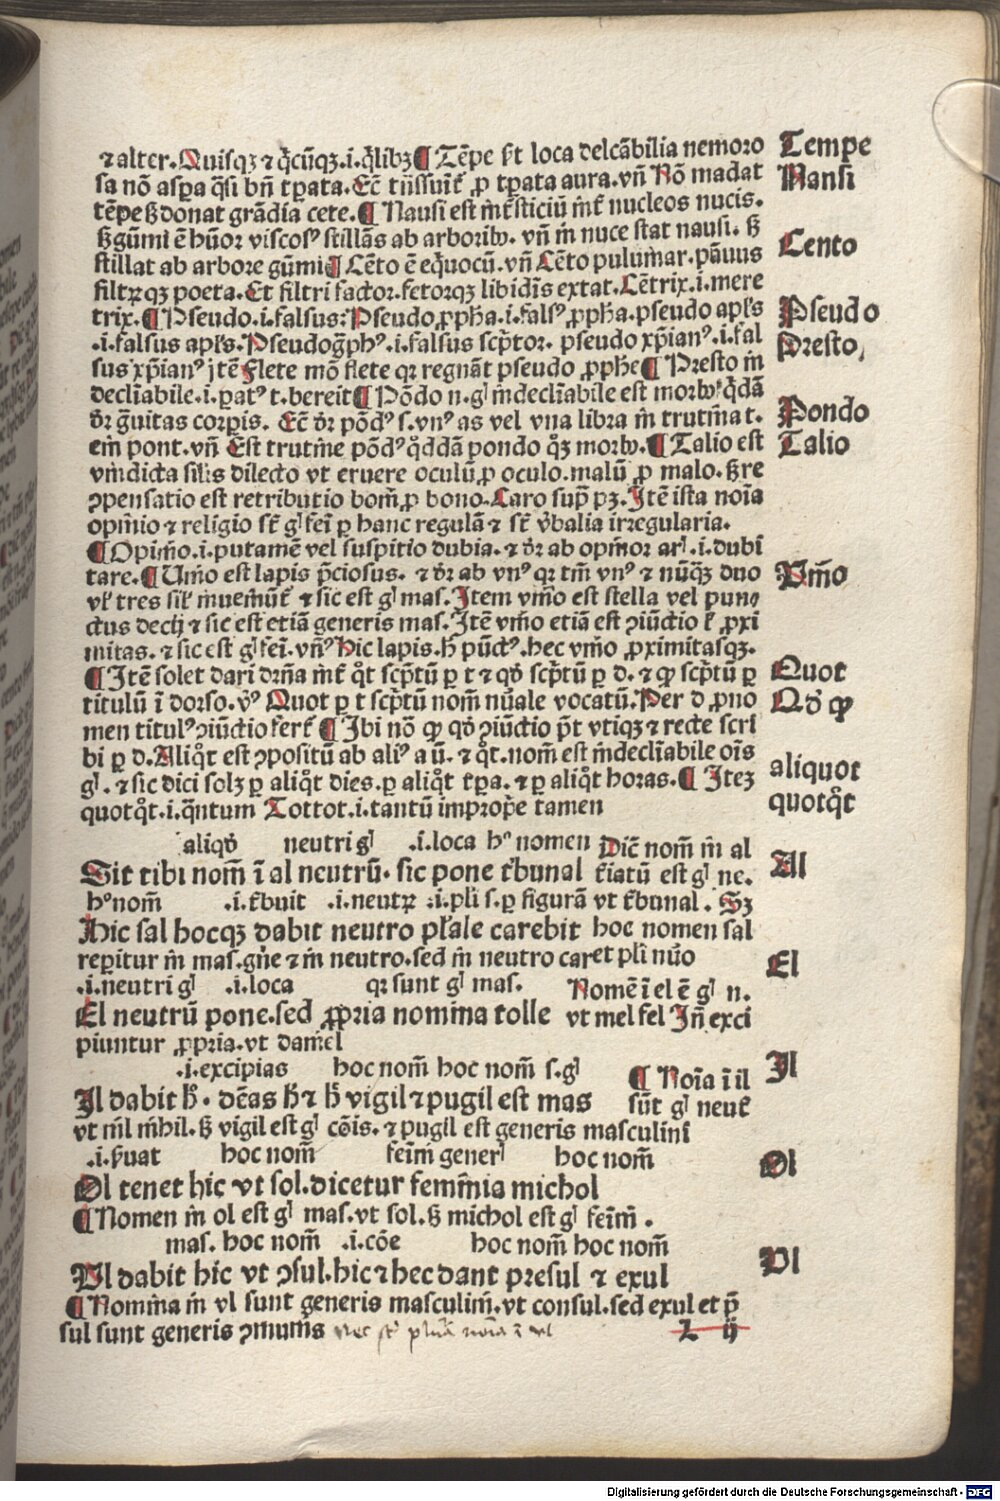 ⁊ alter. Quisqꝫ ⁊ q̄cūqꝫ.i.q̄libꝫ ¶ Tēpe ſt loca delcābilia nemoro Tempe
ſa nō aſpa q̄ſi bn̄ tꝑata. ꝓ tꝑata aura.vn̄ Nō madat Nauſi
tēpe ꝫ donat grādia cete. ¶ Nauſi eſt nucleos nucis.
ꝫ gūmi ē hūor viſcoſꝰ ſtillās ab arboribꝰ. vn̄ in nuce ſtat nauſi. ꝫ
ſtillat ab arbore gūmi ¶ Cēto ē eq̄uocū.vn̄ Cēto puluinar.pāuus Cento
filtrꝫ qꝫ poeta. Et filtri factor.fetorqꝫ libidīs extat. Cētrix.i.mere
trix. ¶ Pſeudo.i.falſus: Pſeudo ꝓph̄a.i.falſꝰ ꝓph̄a. pſeudo apl̄s Pſeudo
.i.falſus apl̄s. Pſeudoḡphꝰ.i.falſus ſcp̄tor. pſeudo xp̄ianꝰ.i.fal
ſus xp̄ianꝰ jtē Flete mō flete qꝛ regnāt pſeudo ꝓphe ¶ Preſto in Preſto
declīabile.i.patꝰ t.bereit ¶ Pōdo n.gl̄ indeclīabile eſt morbꝰ q̄dā
dr̄ ḡuitas corpis. Ec̄ dr̄ pōdꝰ ſ.vnꝰ as vel vna libra in trutina t. Pondo
ein pont.vn̄ Eſt trutine pōdꝰ q̊ddā pondo qꝫ morbꝰ. ¶ Talio eſt Talio
vindicta ſilis dilecto vt eruere oculū ꝓ oculo.malū ꝓ malo. ꝫ re
ꝯpenſatio eſt retributio boni ꝓ bono. Caro ſup̄ pꝫ. Jtē iſta noīa
opinio ⁊ religio ſt̄ gl̄ fei ꝑ hanc regulā ⁊ ſt̄ v̄balia irregularia.
¶ Opinio.i.putamē vel ſuſpitio dubia. ⁊ dr̄ ab opinor arl̄.i.dubi
tare. ¶ Vnio eſt lapis p̄cioſus. ⁊ dr̄ ab vnꝰ qꝛ tm̄ vnꝰ ⁊ nūqꝫ duo Vnio
vl̄ tres ſil̄ inueniūt̄ ⁊ ſic eſt gl̄ maſ. Jtem vnio eſt ſtella vel pun
ctus decij ⁊ ſic eſt etiā generis maſ. Jtē vnio etiā eſt ꝯiūctio ł ꝓxi
mitas. ⁊ ſic eſt gl̄ fei.vn̄ꝰ Hic lapis.h̄ pūctꝰ.hec vnio ꝓximitasqꝫ.
¶ Jtē ſolet dari drn̄a int̄ q̊t ſcp̄tū ꝑ t ⁊ qđ ſcp̄tū ꝑ d. ⁊ ꝙ ſcp̄tū ꝑ Quot
titulū ī dorſo.v̄ꝰ Quot ꝑ t ſcp̄tū nom̄ nūale vocatū. Per d ꝓno Qđ ꝙ
men titulꝰ ꝯiūctio fert̄ ¶ Jbi nō ꝙ qđ ꝯiūctio p̄t vtiqꝫ ⁊ recte ſcri
bi ꝑ d. Aliq̊t eſt ꝯpoſitū ab aliꝰ a ū. ⁊ q̊t.nom̄ eſt indeclīabile oīs aliquot
gl̄. ⁊ ſic dici ſolꝫ ꝑ aliq̊t dies.ꝑ aliq̊t tꝑa. ⁊ ꝑ aliq̊t horas. ¶ Jteꝫ
quotq̊t.i.q̄ntum Tottot.i.tantū improp̄e tamen quotq̊t
aliqđ neutri gl̄ .i.loca hꝰ nomen
Sit tibi nom̄ ī al neutrū. ſic pone tribunal Dic̄ nom̄ in al Al
t̄iatū eſt gl̄ ne.
hꝰ nom̄ .i.t̄buit .i.neutrꝫ .i.pli ſ.ꝑ figurā vt t̄bunal. Sꝫ
Hic ſal hocqꝫ dabit neutro pl̄ale carebit hoc nomen ſal
reꝑitur in maſ.gn̄e ⁊ in neutro.ſed in neutro caret pli nūo El
.i.neutri gl̄ .i.loca qꝛ ſunt gl̄ maſ. Nomē ī el ē gl̄ n.
El neutrū pone.ſed ꝓpria nomina tolle vt mel fel Jn̄ exci
piuntur ꝓpria.vt daniel
.i.excipias hoc nom̄ hoc nom̄ ſ.gl̄ ¶ Noīa ī il Jl
Jl dabit h̄. dēas h̄ ⁊ h̄ vigil ⁊ pugil eſt mas ſūt gl̄ neut̄
vt nil nihil. ꝫ vigil eſt gl̄ cōis. ⁊ pugil eſt generis maſculini
.i.ẜuat hoc nom̄ fein̄i generl̄ hoc nom̄ Ol
Ol tenet hic vt ſol.dicetur feminina michol
¶ Nomen in ol eſt gl̄ maſ.vt ſol. ꝫ michol eſt gl̄ fein̄i.
maſ. hoc nom̄ .i.cōe hoc nom̄ hoc nom̄
Vl dabit hic vt ꝯſul.hic ⁊ hec dant preſul ⁊ exul Vl
¶ Nomina in vl ſunt generis maſculini.vt conſul.ſed exul et p̄
ſul ſunt generis ꝯmunis nec ſt̄ plura noīa ī vl
L ij
Digitalisierung gefördert durch die Deutsche Forschungsgemeinschaft - DFG